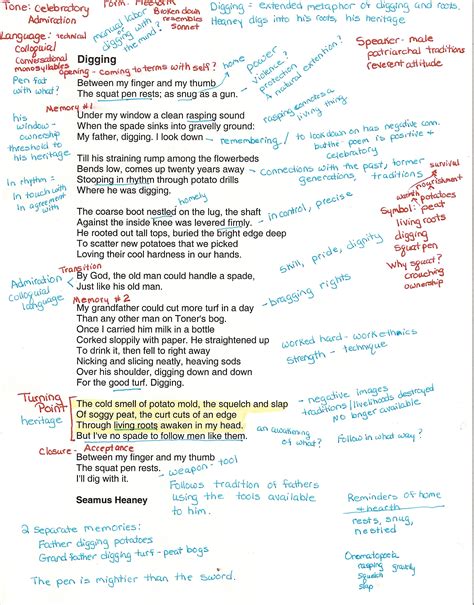 Tone: Celebratory
Admiration
Form: Freeform
Broken down
resembles
sonnet
Digging = extended metaphor of digging and roots.
Heaney digs into his roots, his heritage
Language: technical
Colloquial
Conversational
monosyllables
manual labor
or digging with
the mind?
Speaker - male
patriarchal traditions
reverent attitude
Digging
opening - coming to terms with self?
home
power
violence?
protection
A natural extention?
Pen fat
with what?
Between my finger and my thumb
The squat pen rests; as snug as a gun.
Memory #1
Under my window a clean rasping sound
When the spade sinks into gravelly ground:
My father, digging. I look down
rasping connotes a
living thing
remembering
to look down on has negative conn.
but the poem is positive +
celebratory
his
window -
ownership
threshold to
his heritage
Till his straining rump among the flowerbeds
Bends low, comes up twenty years away
Stooping in rhythm through potato drills
Where he was digging.
Connections with the past, former
generations, traditions
survival
nourishment
warmth
potatoes
Symbol: peat
living roots
digging
squat pen
Why squat?
crouching
ownership
In rhythm =
in touch with
in agreement
with
homely
The coarse boot nestled on the lug, the shaft
Against the inside knee was levered firmly.
He rooted out tall tops, buried the bright edge deep
To scatter new potatoes that we picked
Loving their cool hardness in our hands.
in control, precise
skill, pride, dignity
Transition
Admiration
Colloquial
language
By God, the old man could handle a spade,
Just like his old man.
bragging rights
Memory #2
My grandfather could cut more turf in a day
Than any other man on Toner's bog.
Once I carried him milk in a bottle
Corked sloppily with paper. He straightened up
To drink it, then fell to right away
Nicking and slicing neatly, heaving sods
Over his shoulder, digging down and down
For the good turf. Digging.
worked hard - work ethnics
strength - technique
Turning
Point
heritage
The cold smell of potato mold, the squelch and slap
Of soggy peat, the curt cuts of an edge
Through living roots awaken in my head.
But I've no spade to follow men like them.
negative images
traditions/livelihoods destroyed
No longer available
an awakening
of what?
Follow in what way?
Closure - Acceptance
Between my finger and my thumb
The squat pen rests.
I'll dig with it.
weapon - tool
Follows tradition of fathers
using the tools available
to him.
Seamus Heaney
Reminders of home
+ hearth
nests, snug,
nestled
2 separate memories:
Father digging potatoes
Grand father digging turf - peat bogs
The pen is mightier than the sword.
Onomatopoeia
rasping gravelly
squelch
slap